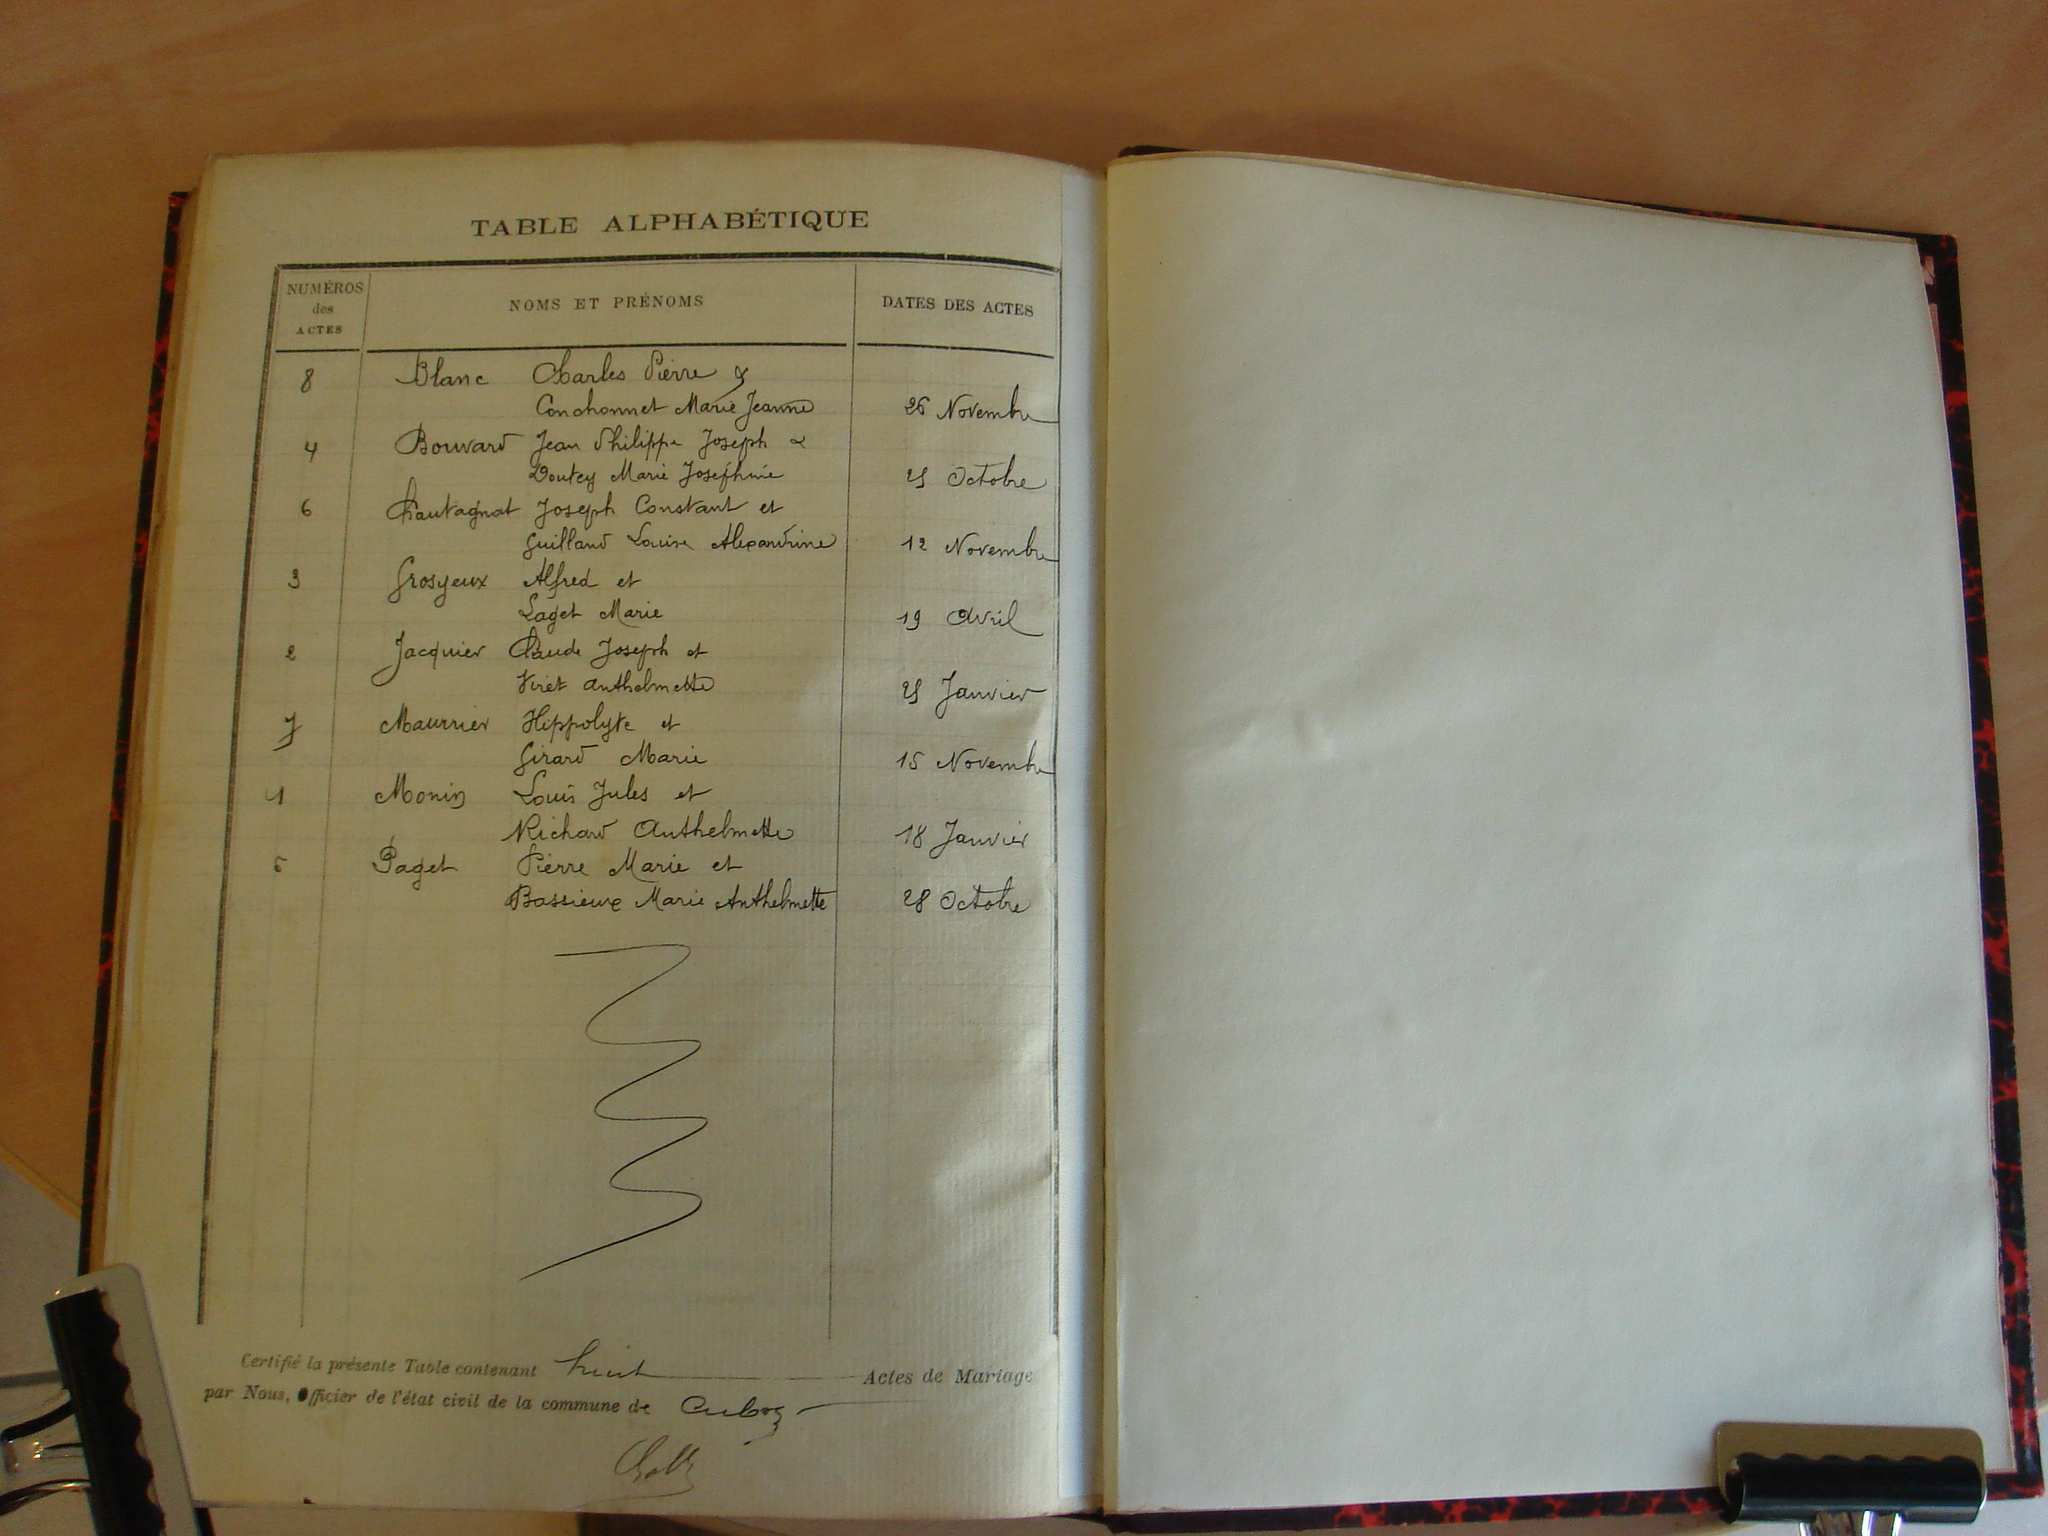 TABLE ALPHABÉTIQUE
NUMÉROS des ACTES
NOMS ET PRÉNOMS
DATES DES ACTES
8 Blanc Charles Pierre &
Conchonnet Marie Jeanne 26 Novembre
4 Bouvard Jean Philippe Joseph &
Doutey Marie Joséphine 25 Octobre
6 Chautagnat Joseph Constant et
Guilland Louise Alexandrine 12 Novembre
3 Grosyeux Alfred et
Laget Marie 19 Avril
2 Jacquier Claude Joseph et
Viret Anthelmette 25 Janvier
7 Maurrier Hippolyte et
Girard Marie 15 Novembre
1 Monin Louis Jules et
Richard Anthelmette 18 Janvier
5 Paget Pierre Marie et
Bassieux Marie Anthelmette 28 Octobre
Certifié la présente Table contenant huit Actes de Mariage
par Nous, Officier de l'état civil de la commune de